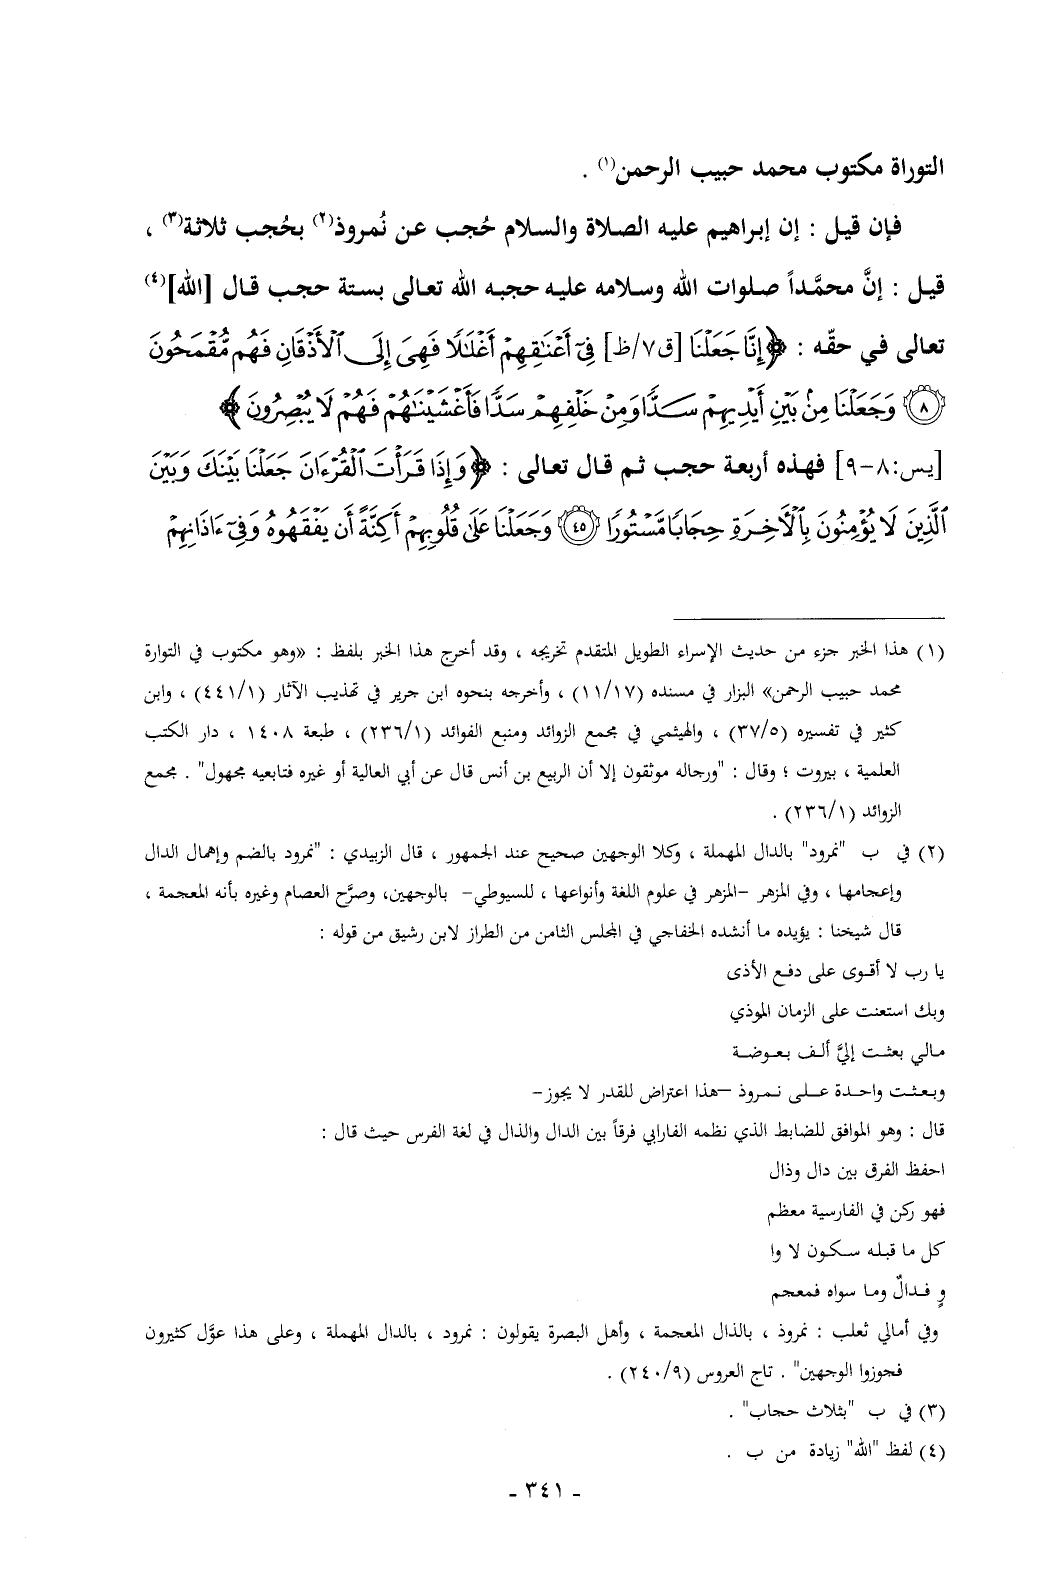 التوراة مكتوب محمد حبيب الرحمن(١) .
فإن قيل : إن إبراهيم عليه الصلاة والسلام حُجب عن نُمروذ(٢) بحُجب ثلاثة(٣) ،
قيل : إنَّ محمَّداً صلوات الله وسلامه عليه حجبه الله تعالى بستة حجب قال [الله](٤)
تعالى في حقّه : ﴿إِنَّا جَعَلْنَا [ق٧/ظ] فِىٓ أَعْنَٰقِهِمْ أَغْلَٰلًا فَهِىَ إِلَى ٱلْأَذْقَانِ فَهُم مُّقْمَحُونَ
(٨) وَجَعَلْنَا مِنۢ بَيْنِ أَيْدِيهِمْ سَدًّا وَمِنْ خَلْفِهِمْ سَدًّا فَأَغْشَيْنَٰهُمْ فَهُمْ لَا يُبْصِرُونَ﴾
[يس:٨-٩] فهذه أربعة حجب ثم قال تعالى : ﴿وَإِذَا قَرَأْتَ ٱلْقُرْءَانَ جَعَلْنَا بَيْنَكَ وَبَيْنَ
ٱلَّذِينَ لَا يُؤْمِنُونَ بِٱلْأَخِرَةِ حِجَابًا مَّسْتُورًا (٤٥) وَجَعَلْنَا عَلَىٰ قُلُوبِهِمْ أَكِنَّةً أَن يَفْقَهُوهُ وَفِىٓ ءَاذَانِهِمْ
(١) هذا الخبر جزء من حديث الإسراء الطويل المتقدم تخريجه ، وقد أخرج هذا الخبر بلفظ : «وهو مكتوب في التوارة
محمد حبيب الرحمن» البزار في مسنده (١١/١٧) ، وأخرجه بنحوه ابن جرير في تهذيب الآثار (٤٤١/١) ، وابن
كثير في تفسيره (٣٧/٥) ، والهيثمي في مجمع الزوائد ومنبع الفوائد (٢٣٦/١) ، طبعة ١٤٠٨ ، دار الكتب
العلمية ، بيروت ؛ وقال : "ورجاله موثقون إلا أن الربيع بن أنس قال عن أبي العالية أو غيره فتابعيه مجهول" . مجمع
الزوائد (٢٣٦/١) .
(٢) في ب "نمرود" بالدال المهملة ، وكلا الوجهين صحيح عند الجمهور ، قال الزبيدي : "نمرود بالضم وإهمال الدال
وإعجامها ، وفي المزهر -المزهر في علوم اللغة وأنواعها ، للسيوطي- بالوجهين، وصرَّح العصام وغيره بأنه المعجمة ،
قال شيخنا : يؤيده ما أنشده الخفاجي في المجلس الثامن من الطراز لابن رشيق من قوله :
يا رب لا أقوى على دفع الأذى
وبك استعنت على الزمان الموذي
مالي بعثت إليَّ ألف بعوضة
وبعثت واحدة على نمروذ –هذا اعتراض للقدر لا يجوز–
قال : وهو الموافق للضابط الذي نظمه الفارابي فرقاً بين الدال والذال في لغة الفرس حيث قال :
احفظ الفرق بين دال وذال
فهو ركن في الفارسية معظم
كل ما قبله سكون لا وا
وٍ فدالٌ وما سواه فمعجم
وفي أمالي ثعلب : نمروذ ، بالذال المعجمة ، وأهل البصرة يقولون : نمرود ، بالدال المهملة ، وعلى هذا عوَّل كثيرون
فجوزوا الوجهين" . تاج العروس (٢٤٠/٩) .
(٣) في ب "بثلاث حجاب" .
(٤) لفظ "الله" زيادة من ب .
- ٣٤١ -